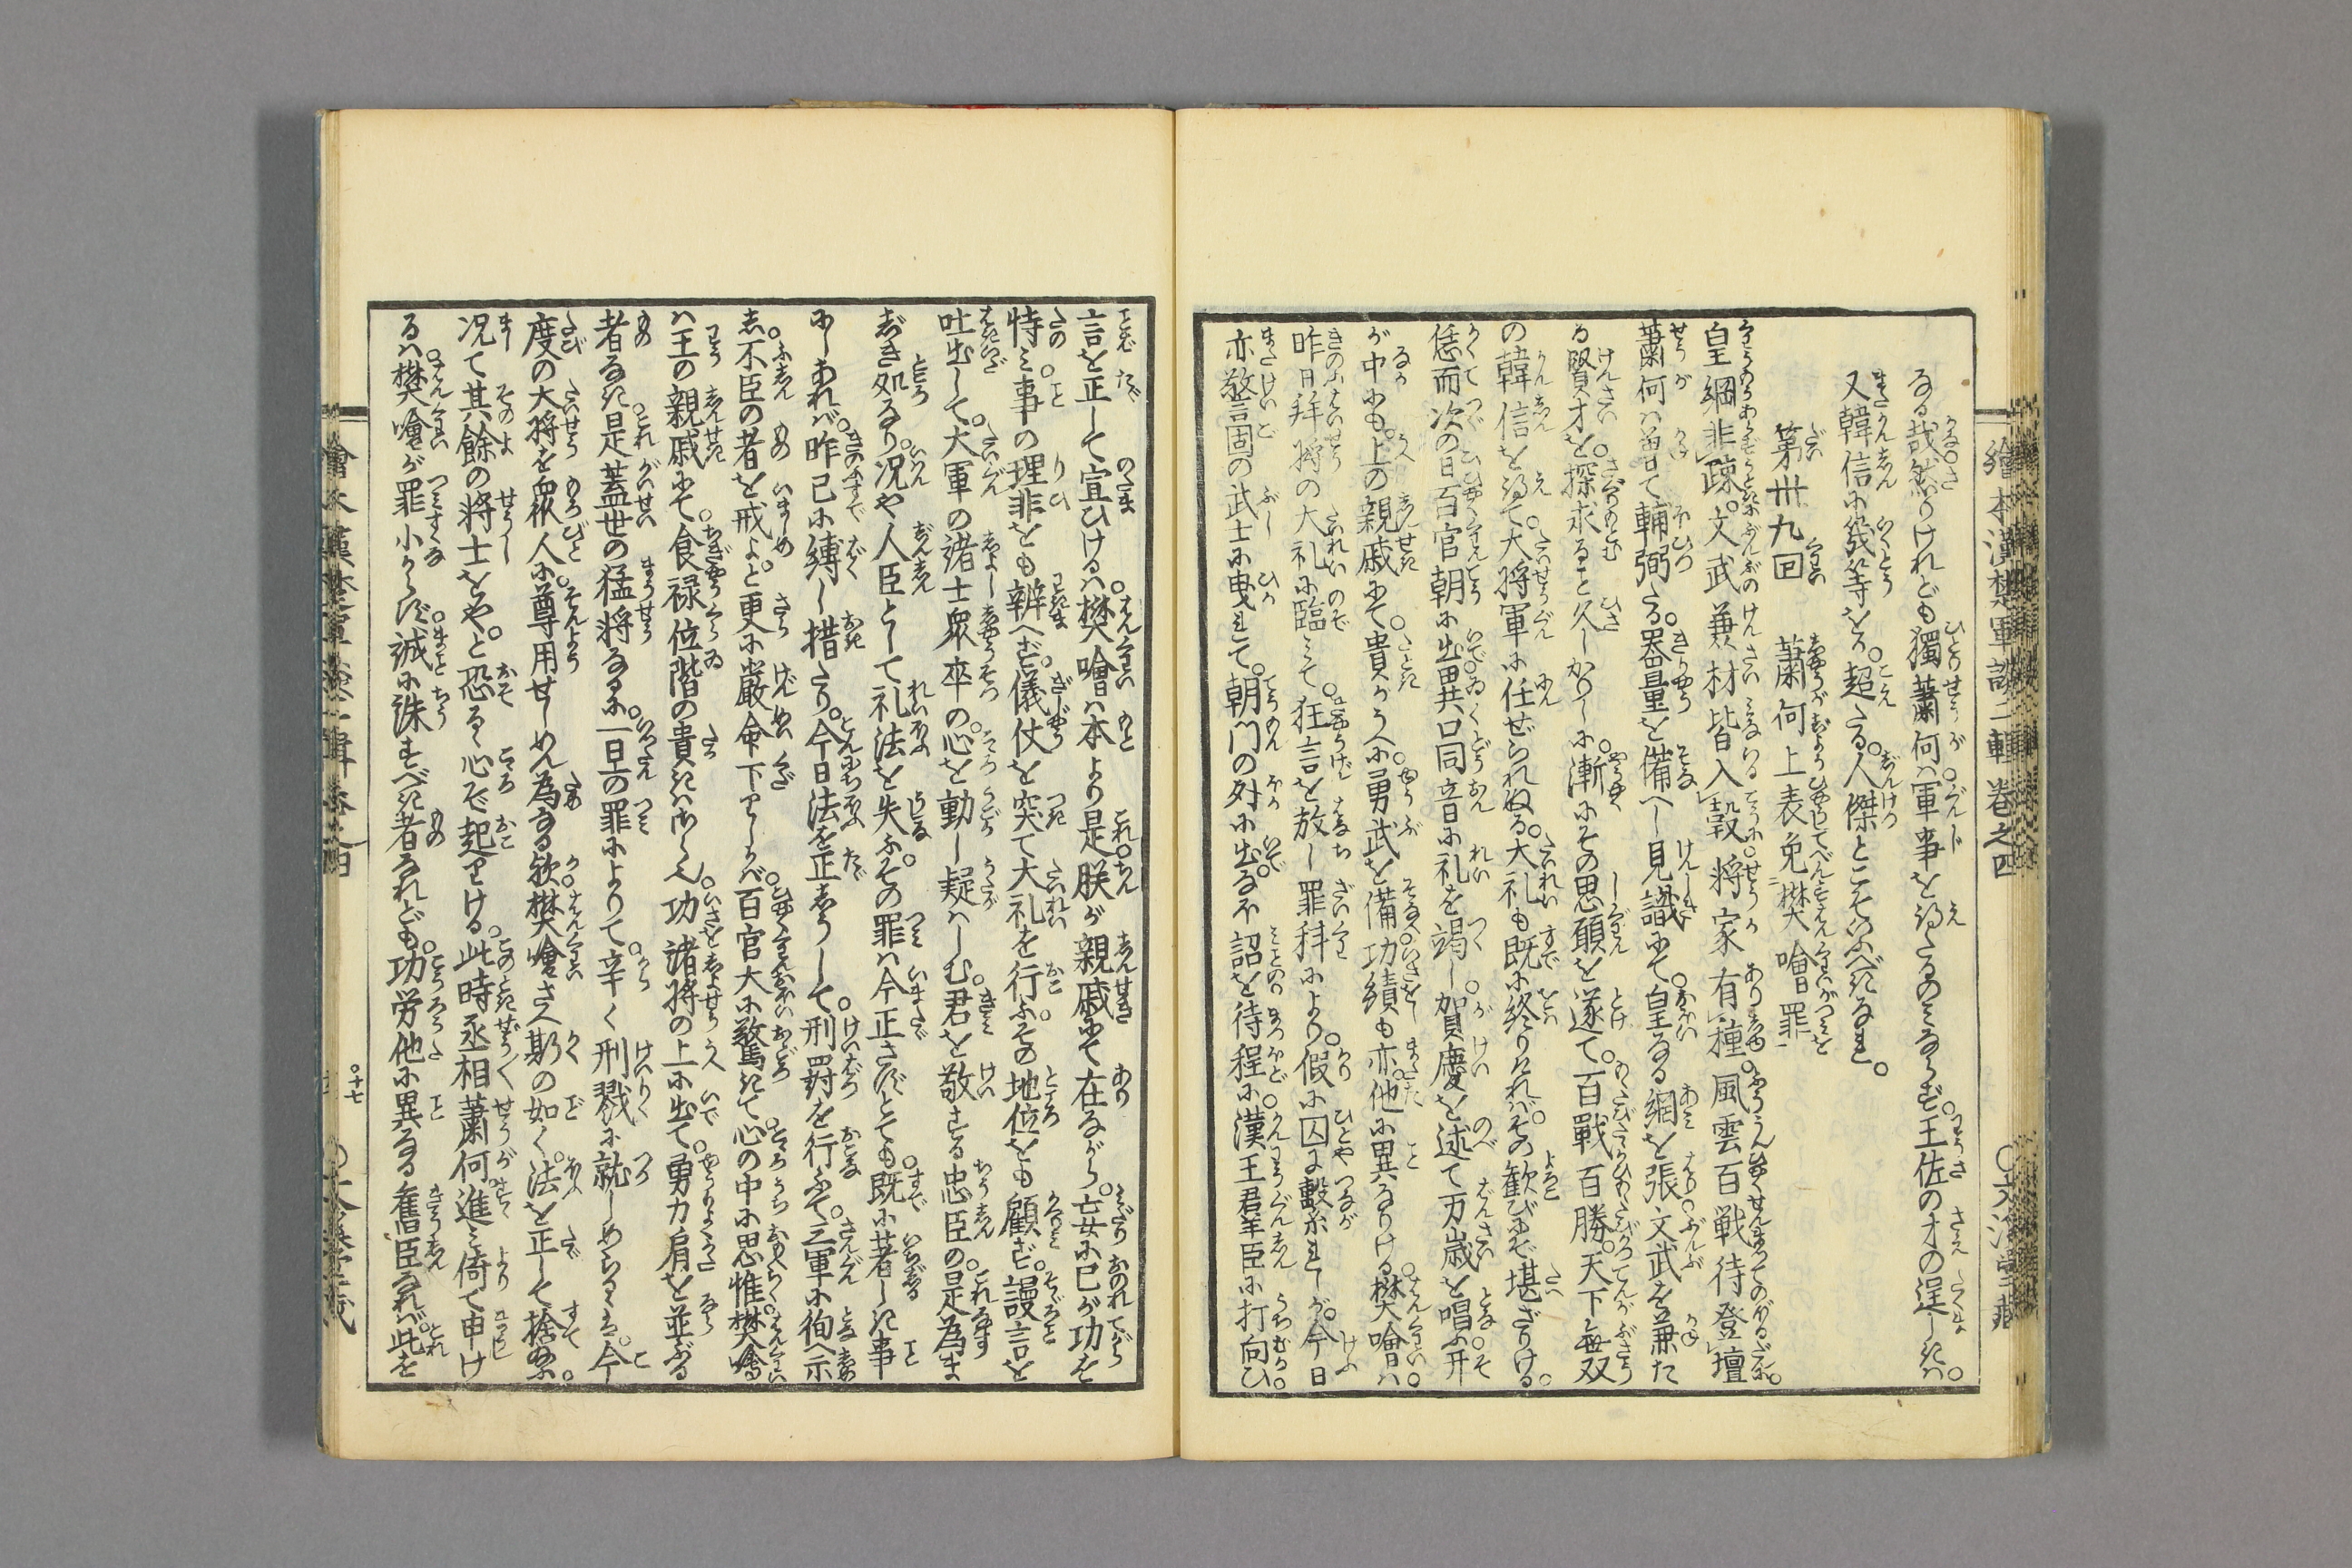 繪本漢楚軍談二輯巻之四
なる哉。然りけれども獨蕭何ハ。軍事を得たるのミならず。王佐の才の逞しきハ。
又韓信に幾等をか。超たる。人傑とこそいふべきなれ。
第卅九回　蕭何上表免樊噲罪
皇綱非踈。文武兼材皆入彀。将家有種。風雲百戦待登壇。
蕭何ハ曽て輔弼たる。器量を備へし見識にて。皇なる網を張。文武を兼た
る賢才を。探求ること久しかりしに。漸にその思願を遂て。百戰百勝。天下無双
の韓信を得て。大将軍に任ぜられぬる。大礼も既に終りけれバ。その歓びにぞ堪ざりける。
恁而次の日百官朝に出。異口同音に礼を竭し。賀慶を述て万歳を唱ふ。其
が中にも。上の親戚にて。貴きうへに。勇武を備。功績も亦。他に異なりける。樊噲ハ。
昨日拜将の大礼に臨ミて。狂言を放し罪科により。假に囚に繋れしが。今日
亦警固の武士に曳れて。朝門の外に出。なほ詔を待程に。漢王君羣臣に打向ひ。
言を正して宣ひけるハ。樊噲ハ本より是。朕が親戚にて在ながら。妄に己が功を
恃ミ。事の理非をも辨へず。儀仗を突て大礼を行ふ。その地位をも顧ず。謾言を
吐出して。大軍の諸士衆卒の。心を動し疑ハしむ。君を敬する忠臣の。是為ま
じき処なり。况や人臣として礼法を失ふ。その罪ハ今正さずとても。既に著しき事
にしあれバ。昨已に縛し措たり。今日法を正しうして。刑罸を行ふて。三軍に徇へ示
し。不臣の者を戒よ。と更に厳命下りしかバ。百官大に驚きて。心の中に思惟。樊噲
ハ王の親戚にて。食禄位階の貴きハさらん。功諸将の上に出て。勇力肩を並ぶる
者なき。是蓋世の猛将なるに。一旦の罪によりて。辛く刑戮に就しめらるゝは。今
度の大将を衆人に。尊用せしめん為なる歟。樊噲さへ斯の如く。法を正して捨給ふ。
况て其餘の将士をや。と恐るゝ心ぞ起りける。此時丞相蕭何。進ミ倚て申け
るハ。樊噲が罪小からず。誠に誅すべき者なれども。功労他に異なる舊臣なれバ。此を
十七